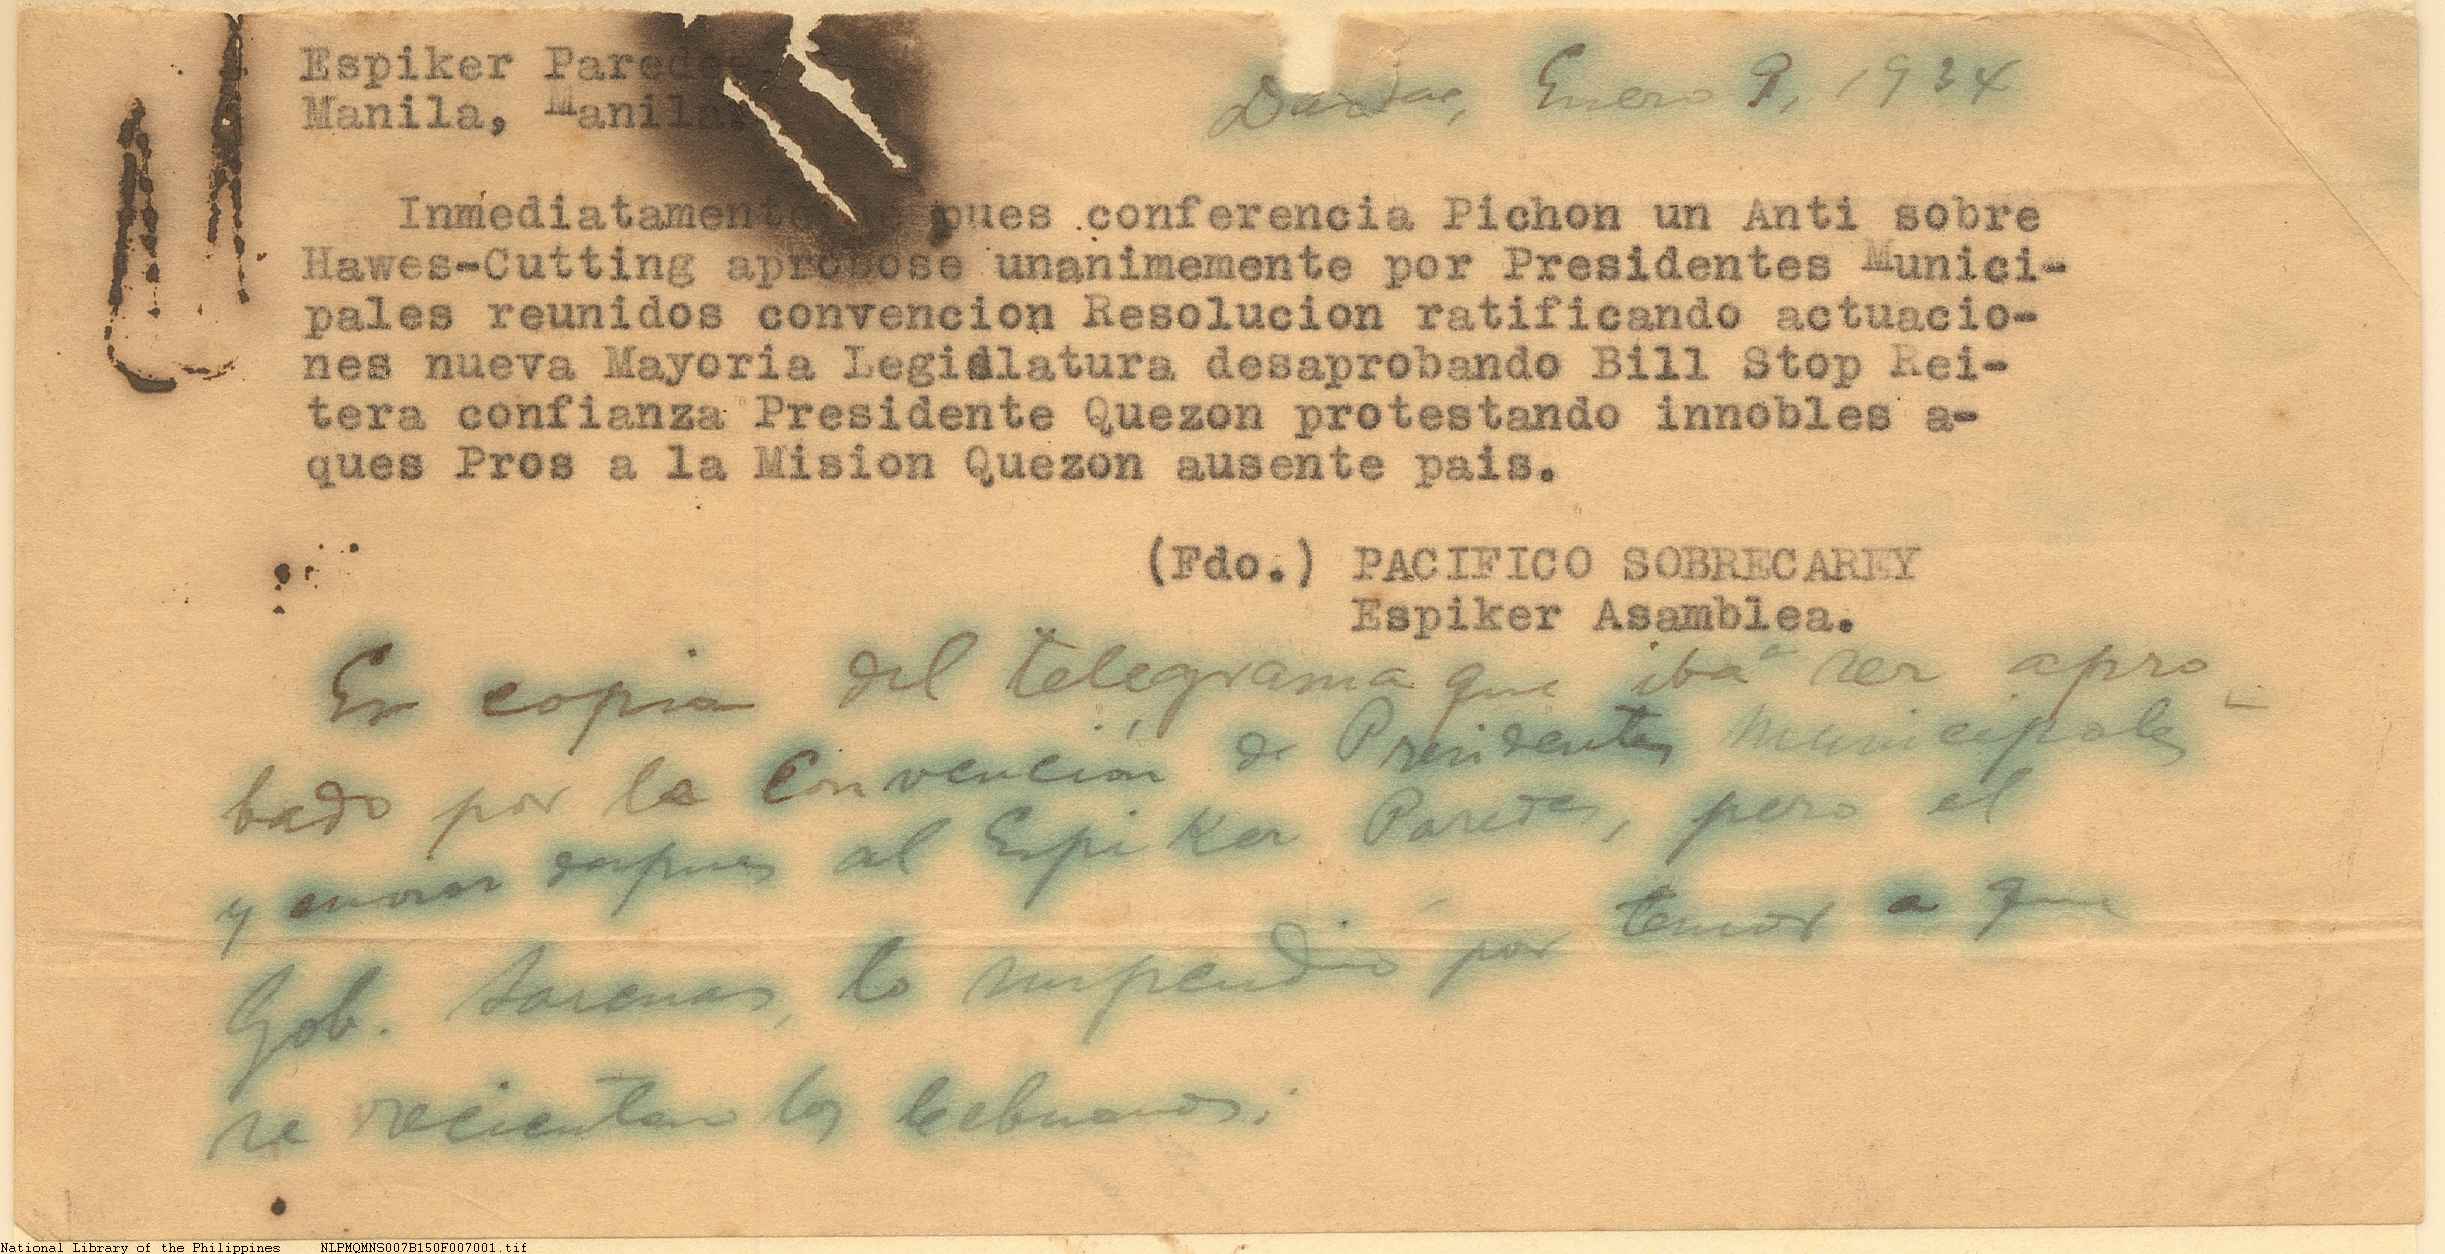 Espiker Paredes,
Manila, Manila.
Enero 9, 1934
Inmediatamente pues conferencia Pichon un Anti sobre
Hawes-Cutting aprobose unanimemente por Presidentes Munici-
pales reunidos convencion Resolucion ratificando actuacio-
nes nueva Mayoria Legislatura desaprobando Bill Stop Rei-
tera confianza Presidente Quezon protestando innobles a-
ques Pros a la Mision Quezon ausente pais.
(Fdo.) PACIFICO SOBRECAREY
Espiker Asamblea.
Es copia del telegrama que iba a ser apro-
bado por la Convención de Presidentes Municipales
y enviar despues al Espiker Paredes, pero el
Gob. Sarenas, lo suspendió por temor a que
se recientan los Cebuanos.
National Library of the Philippines NLPMQMNS007B150F007001.tif